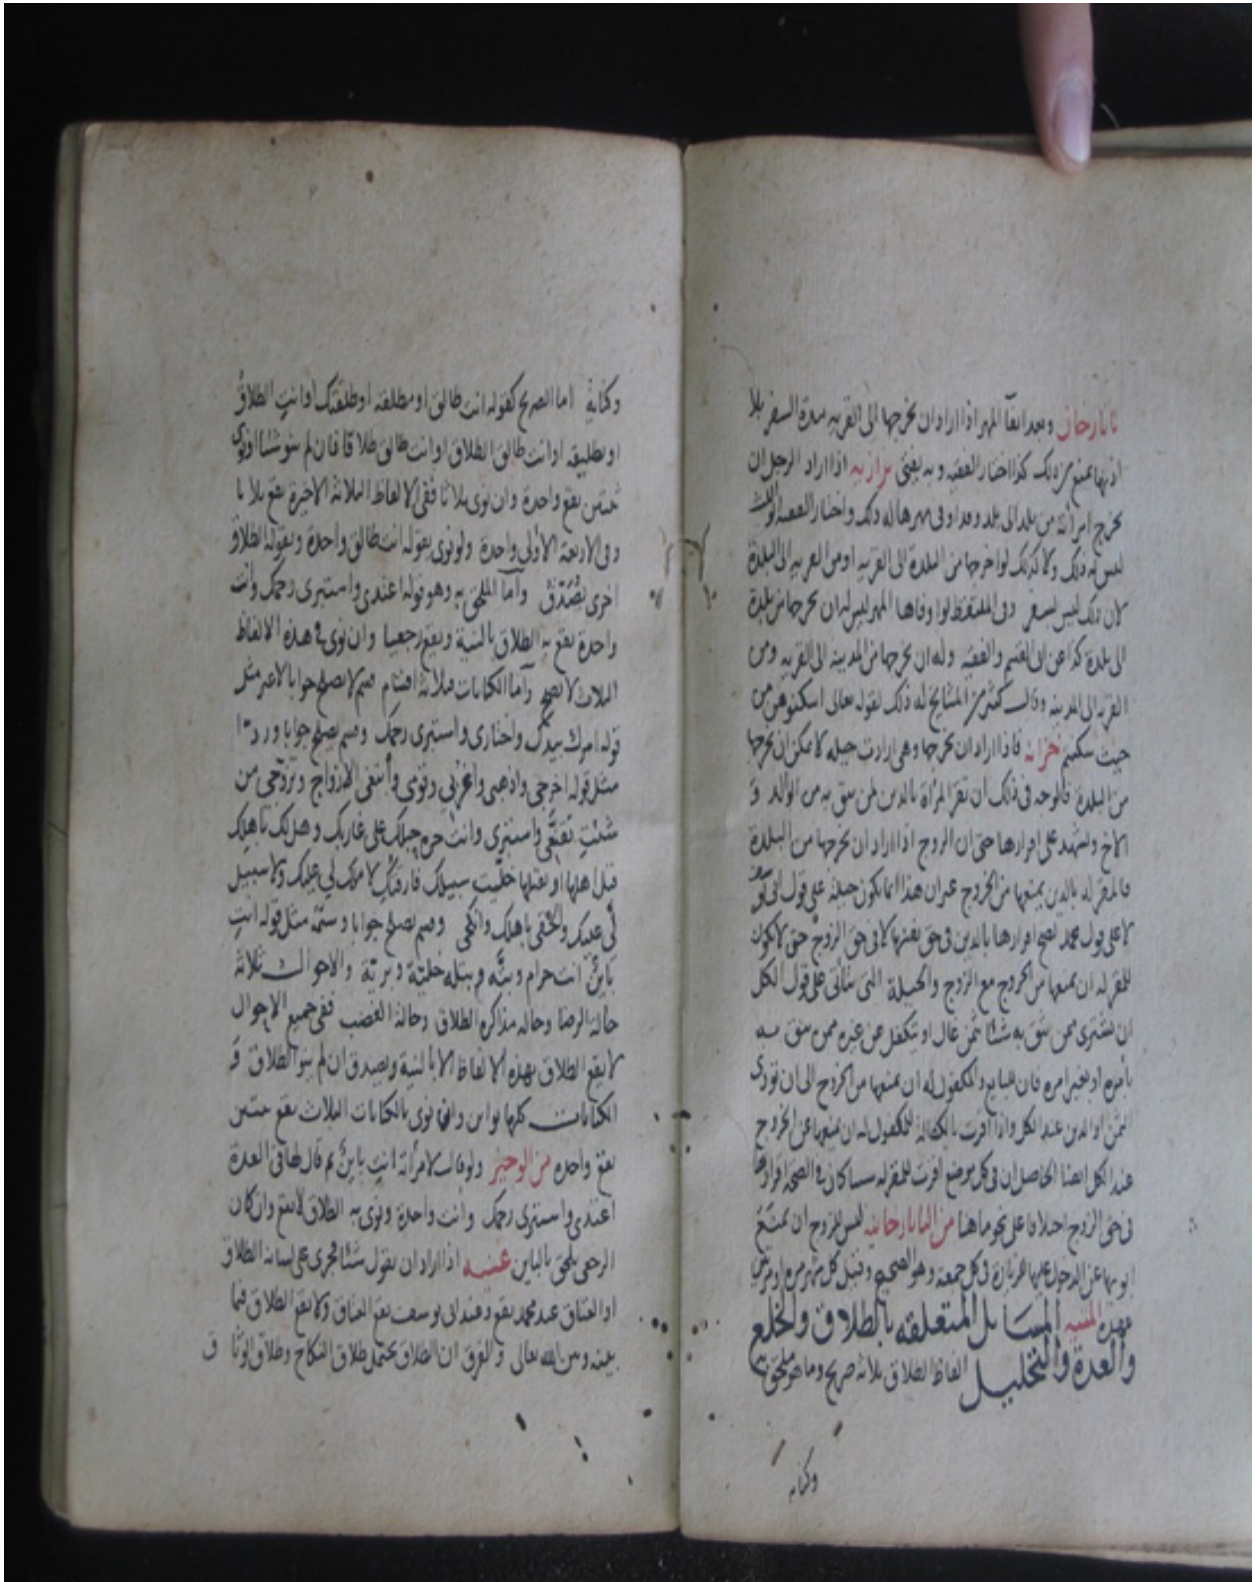 تاتارخان وبعد ايفآ المهر اذا اراد ان يخرجها الى القريه مدة السفر بلا
اذنها يمنع من ذلك كذا اختار الفقيه وبه يفتى بزازيه اذا اراد الرجل ان
يخرج امرأته من بلد الى بلد وقد اوفى مهرها له ذلك واختار الفقيه ابو الليث
ليس له ذلك ولا كذلك لو اخرجها من البلدة الى القريه او من القريه الى البلدة
لان ذلك ليس بسفر وفى الملتقط لو اوفاها المهر ليس له ان يخرجها من بلدة
الى بلدة كذا عن ابى القسم والفقيه وله ان يخرجها من المدينه الى القريه ومن
القريه الى المدينه وقال كثير من المشايخ له ذلك لقوله تعالى اسكنوهن من
حيث سكنتم خزانه فاذا اراد ان يخرجها وهى ارادت حيله لا يمكن ان يخرجها
من البلدة فالوجه فى ذلك ان تقر المرأة بالدين لمن يثق به من الوالد و
الاخ وتشهد على اقرارها حتى ان الزوج اذا اراد ان يخرجها من البلدة
فالمقر له بالدين يمنعها من الخروج غير ان هذا انما يكون حيلة على قول ابى
لا على قول محمد يصح اقرارها بالدين فى حق نفسها لا فى حق الزوج حتى لا يكون
للمقر له ان يمنعها من الخروج مع الزوج والحيلة التى تتأتى على قول الكل
ان تشترى ممن تثق به شيئا بثمن غال او تتكفل عن غيره ممن تثق به
بأمره او بغير امره فان للبايع والمكفول له ان يمنعها من الخروج الى ان تؤدى
الثمن او الدين عند الكل واذا اقرت بالكفالة للمكفول له ان يمنعها عن الخروج
عند الكل ايضا الحاصل ان فى كل موضع اقرت للمقر له سببا كان فى الصحة اقرارها
فى حق الزوج اختلافا على نحو ما هنا من التاتارخانيه ليس للزوج ان يمنع
ابويها عن الدخول عليها للزيارة فى كل جمعة وهو الصحيح وقيل كل شهر مرة
المنيه المسائل المتعلقه بالطلاق والخلع
والعدة والتحليل الفاظ الطلاق ثلاثة صريح وما هو ملحق به
وكنايه
وكناية اما الصريح كقوله انت طالق او مطلقه او طلقتك او انت الطلاق
او تطليقه او انت طالق الطلاق او انت طالق طلاقا فان لم ينو شيئا او نوى
ثنتين يقع واحدة وان نوى ثلاثا ففى الالفاظ الثلاثة الاخيرة يقع ثلاثا
وفى الاربعة الاولى واحدة ولو نوى بقوله انت طالق واحدة وبقوله الطلاق
اخرى يُصَدّق وأما الملحق به وهو قوله اعتدى واستبرى رحمك وانت
واحدة يقع به الطلاق بالنية ويقع رجعيا وان نوى فى هذه الالفاظ
الثلاث لا يصح وأما الكنايات فثلاثة اقسام قسم لا يصلح جوابا لا غير مثل
قوله امرك بيدك واختارى واستبرى رحمك وقسم يصلح جوابا وردا
مثل قوله اخرجى واذهبى واغربي وقومى وأبتغى الازواج وتزوّجى من
شئتِ تقنّعى واستترى وانت حره حبلك على غاربك وهبتك لاهلك
قبل اهلها او يقبلها خلّيت سبيلك فارقتكِ لا ملك لي عليك ولا سبيل
لى عليك والحقى باهلك وانكحى وقسم يصلح جوابا وشتمه مثل قوله انتِ
باين انت حرام وبتّه وبتله خليّة وبريّة والاحوال ثلاثة
حالة الرضا وحاله مذاكره الطلاق وحالة الغضب ففى جميع الاحوال
لا يقع الطلاق بهذه الالفاظ الا بالنية ويصدق ان لم ينو الطلاق و
الكنايات كلها بواين وان نوى بالكنايات الثلاث يقع ثنتين
يقع واحده من الوجيز ولو قال لامرأته انتِ باينٌ ثم قال لها فى العدة
اعتدى واستبرى رحمك وانت واحدة ونوى به الطلاق لا يقع وان كان
الرجعى يلحق بالباين غنيه اذا اراد ان يقول شيئا فجرى على لسانه الطلاق
او العتاق عند محمد يقع وعند ابى يوسف يقع العتاق ولا يقع الطلاق فيما
بينه وبين الله تعالى والفرق ان الطلاق يحتمل طلاق النكاح وطلاق الوثاق